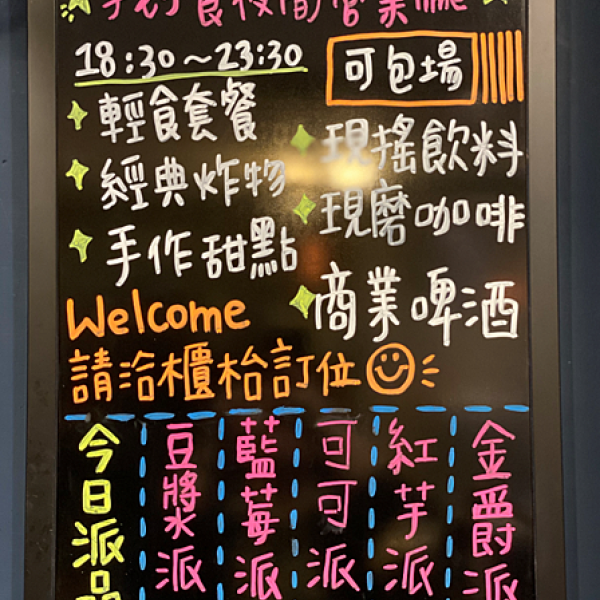 18:30～23:30
可包場
輕食套餐
現搖飲料
經典炸物
現磨咖啡
手作甜點
商業啤酒
Welcome
請洽櫃枱訂位
今日派品
豆漿派
藍莓派
可可派
紅芋派
金爵派